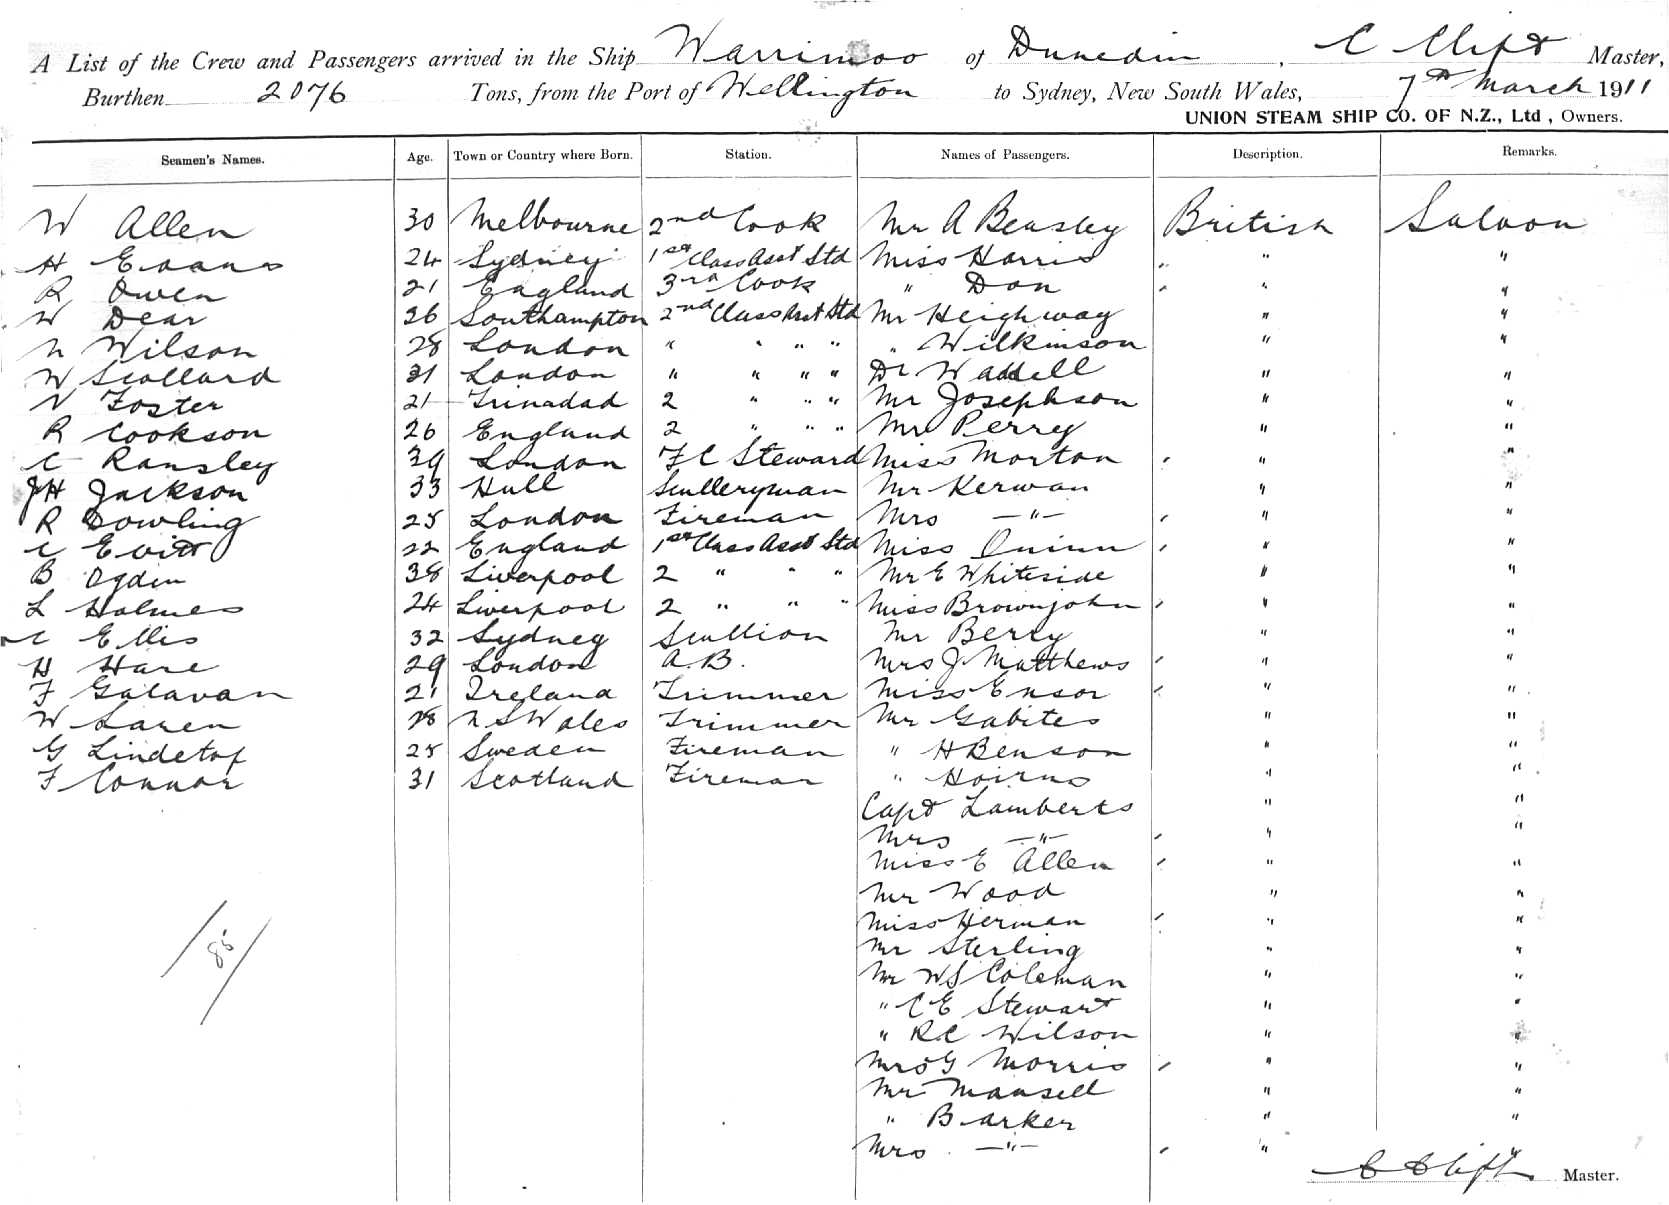 A List of the Crew and Passengers arrived in the Ship Warrimoo of Dunedin, C Clift Master,
Burthen 2076 Tons, from the Port of Wellington to Sydney, New South Wales, 7th March 1911
UNION STEAM SHIP CO. OF N.Z., Ltd, Owners.
Seamen's Names. Age. Town or Country where Born. Station. Names of Passengers. Description. Remarks.
W Allen 30 Melbourne 2nd Cook Mr A Beasley British Saloon
H Evans 24 Sydney 1st Class Asst Std Miss Harris " "
R Owen 21 England 3rd Cook " Don " "
W Dear 26 Southampton 2nd Class Asst Std Mr Heighway " "
N Wilson 28 London " " " " " Wilkinson " "
W Scollard 31 London " " " " Dr Waddell " "
N Foster 21 Trinadad 2 " " " Mr Josephson " "
R Cookson 26 England 2 " " " Mr Perry " "
C Ransley 39 London F C Steward Miss Morton " "
JH Jackson 33 Hull Sculleryman Mr Kerwan " "
R Dowling 25 London Fireman Mrs —"— " "
C Evitt 22 England 1st Class Asst Std Miss Quinn " "
B Ogden 38 Liverpool 2 " " " Mr E Whiteside " "
L Holmes 24 Liverpool 2 " " " Miss Brownjohn " "
C Ellis 32 Sydney Scullion Mr Berry " "
H Hare 29 London A.B. Mrs J. Matthews " "
F Galavan 21 Ireland Trimmer Miss Ensor " "
W Laren 28 N S Wales Trimmer Mr Gabites " "
G Lindetof 25 Sweden Fireman " H Benson " "
F Connor 31 Scotland Fireman " " "
Capt Lamberts " "
Mrs —"— " "
Miss E Allen " "
Mr Wood " "
Miss Herman " "
Mr Sterling " "
Mr WS Coleman " "
" C E Stewart " "
" R.C Wilson " "
Mrs G Morris " "
Mr Mansell " "
" Barker " "
Mrs —"— " "
85
C Clift Master.